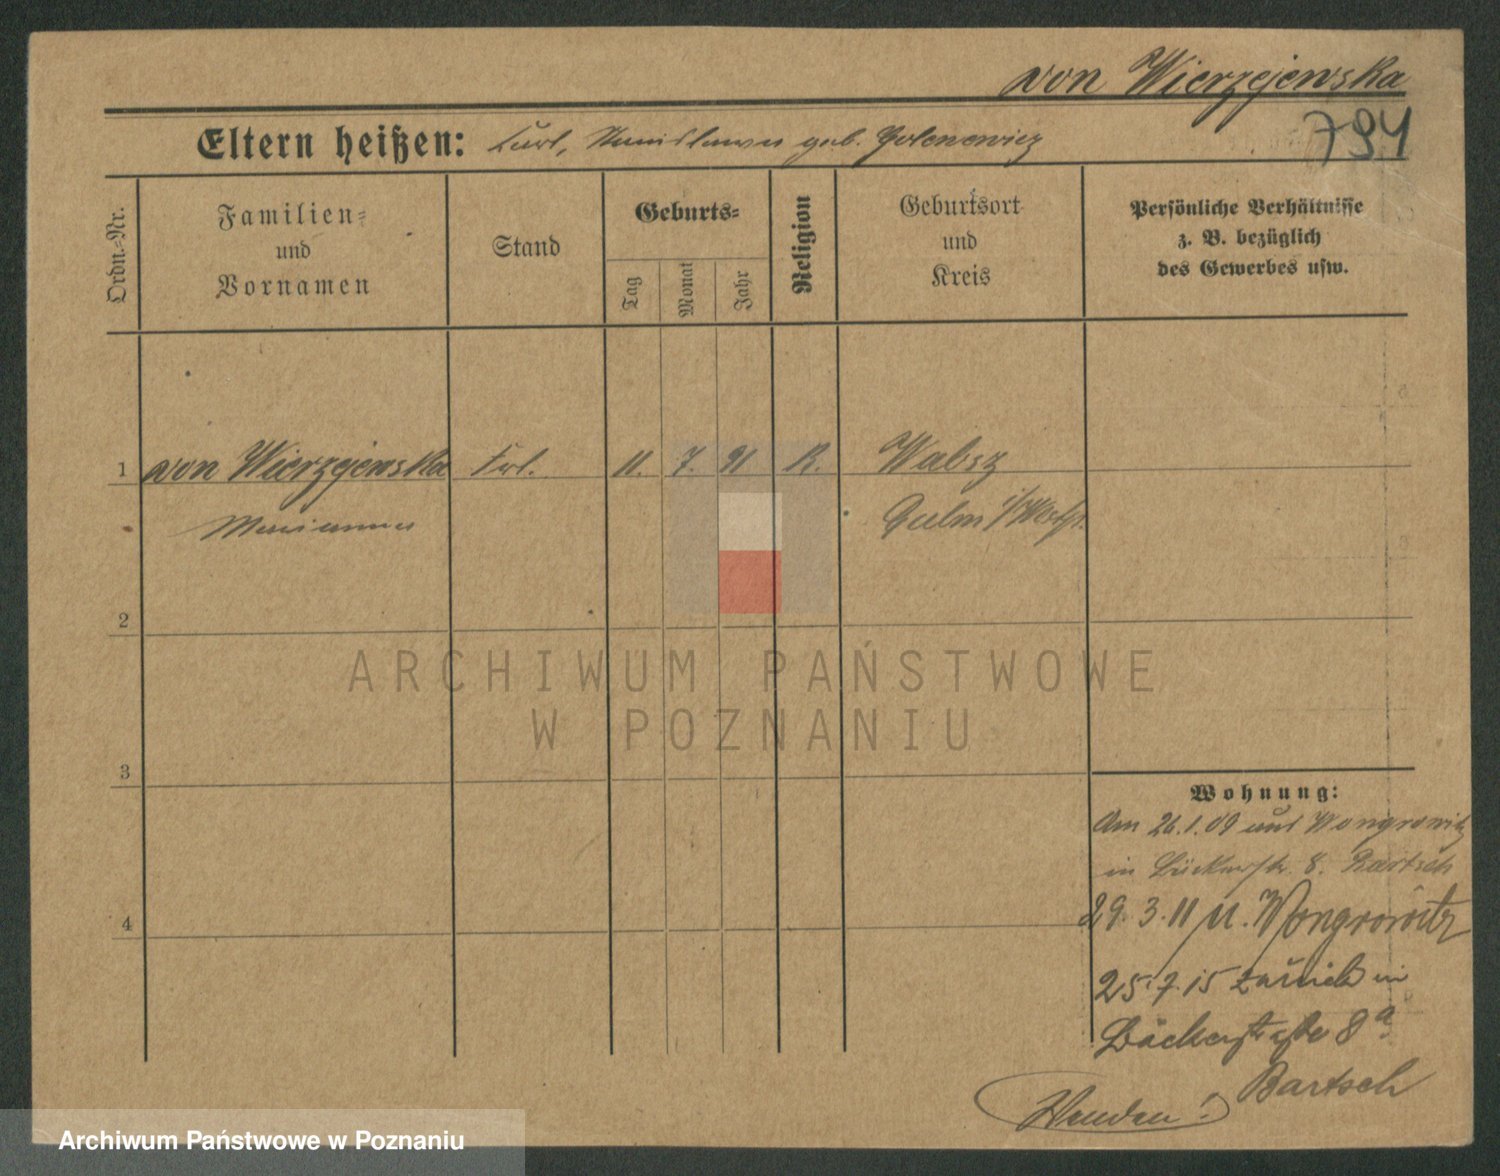 von Wierzejewska
794
Eltern heißen: Karl, Stanislawa geb. Golenewicz
Ordn.=Nr.
Familien=
und
Vornamen
Stand
Geburts=
Tag
Monat
Jahr
Religion
Geburtsort
und
Kreis
Persönliche Verhältnisse
z. B. bezüglich
des Gewerbes usw.
1 von Wierzejewska Frl. 11. 7. 91 R. Wabsz
Marianna Culm i/Westpr.
2
ARCHIWUM PAŃSTWOWE
W POZNANIU
3
Wohnung:
Am 26.1.09 aus Wongrowitz
in Bäckerstr. 8. Bartsch
4
29.3.11 n. Wongrowitz
25.7.15 zurück in
Bäckerstraße 8a
Bartsch
Wenden!
Archiwum Państwowe w Poznaniu